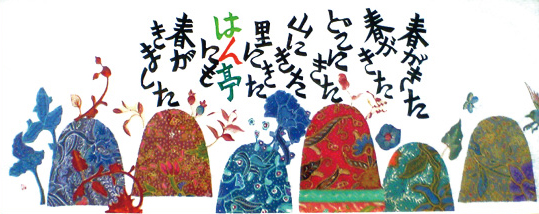 春がきた
春がきた
どこにきた
山にきた
里にきた
はん亭
にも
春が
きました